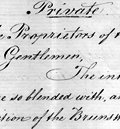 Private
Proprietors of
Gentlemen,
The
so blended with, a
tion of the Bruns